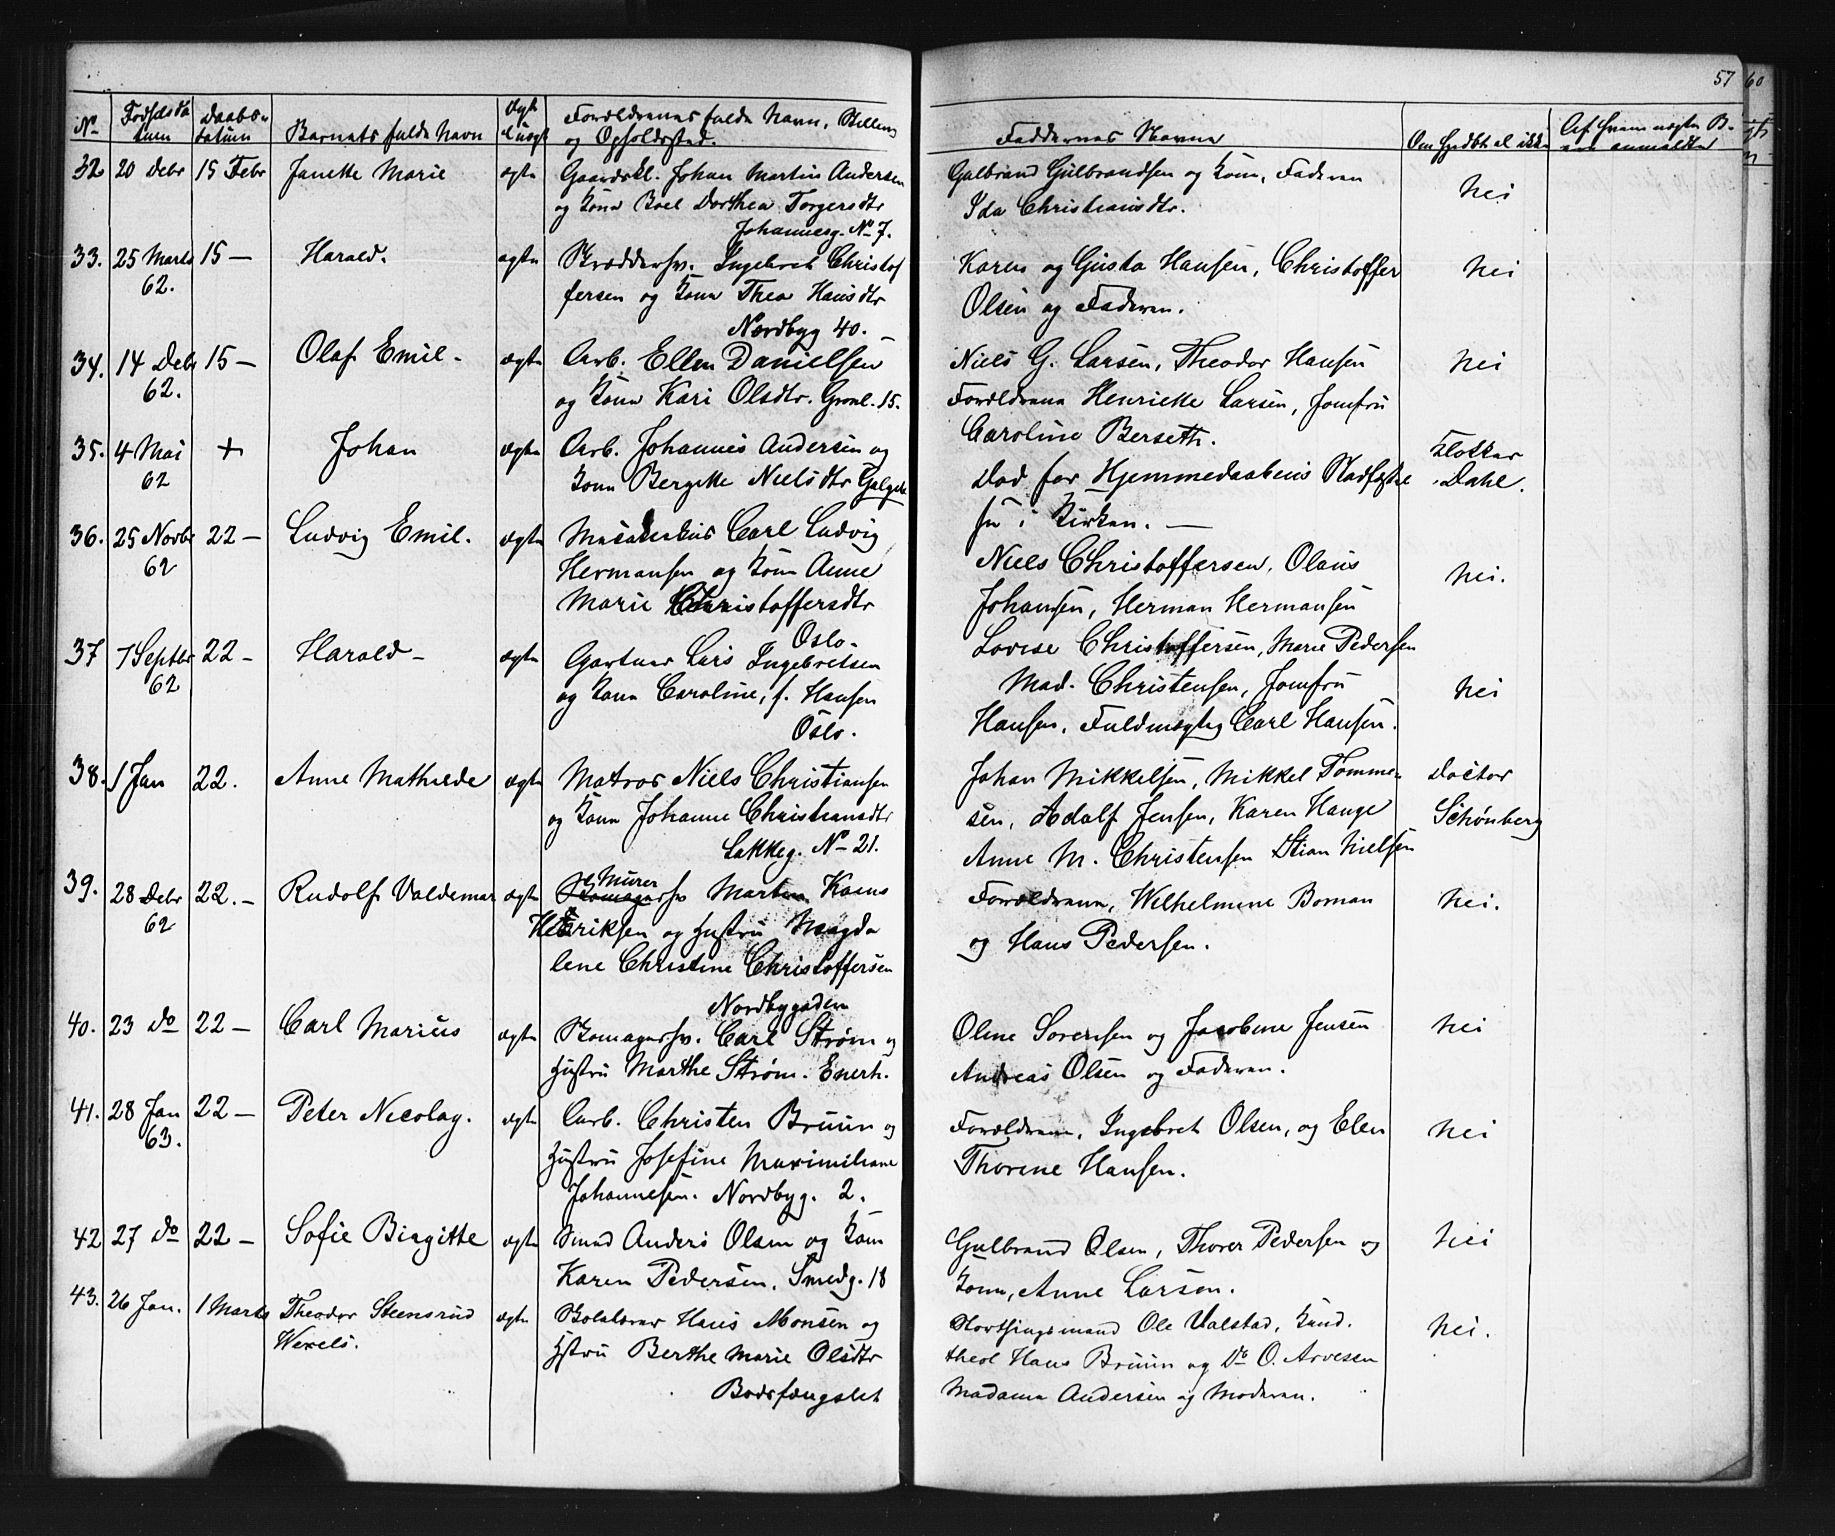 57 60
No Fødselsda Daabs- Barnets fulde Navn Ægte Forældrenes fulde Navn, Stilling
tum datum el. uægt og Opholdssted.
Faddernes Navne Om hjdbt el ikke Af hvem uægte B.
ere anmeldte
32 20 Debr 15 Febr Janette Marie ægte Gaardskl. Johan Martin Andersen
og Kone Boel Dorthea Torgersdtr
Johannesg. No 7.
Gulbrand Gulbrandsen og Kone, Faderen Nei
Ida Christiansdtr.
33. 25 Marts 15 — Harald. ægte Skræddersv. Ingebret Christof
62. fersen og Kone Thea Hansdtr
Nordbyg 40.
Karen og Gusta Hansen, Christoffer Nei
Olsen og Faderen.
34. 14 Debr 15 — Olaf Emil - ægte Arb. Ellen Danielsen
62. og Kone Kari Olsdtr. Grønl. 15.
Niels G. Larsen, Theodor Hansen Nei
Forældrene Henriette Larsen, Jomfru
Caroline Berseth.
35. 4 Mai + Johan ægte Arb. Johannes Andersen og
62 Kone Bergitte Nielsdtr Galgeb
Død før Hjemmedaabens Stadfæstel
se i Kirken. —
Klokker
Dahl.
36. 25 Novbr 22 — Ludvig Emil. ægte Carl Ludvig
62 Hermansen og Kone Anne
Marie Christoffersdtr
Oslo.
Niels Christoffersen, Olaus Nei.
Johansen, Herman Hermansen
Lovise Christoffersen, Marie Pedersen
37 7 Septbr 22 — Harald — ægte Gartner Lars Ingebretsen
62 og Kone Caroline, f. Hansen
Oslo.
Mad. Christensen, Jomfru Nei
Hansen, Fuldmægtig Carl Hansen.
38. 1 Jan 22. Anne Mathilde ægte Matros Niels Christiansen
og Kone Johanne Christiansdtr
Lakkeg. No 21.
Johan Mikkelsen, Mikkel Tomme- Doctor
sen, Adolf Jensen, Karen Hauge Schønberg
Anne M. Christensen Stian Nielsen
39. 28 Debr 22. — Rudolf Valdemar ægte Murer sv Marten Kaens
62 Henriksen og Hustru Magda
lene Christine Christoffersen
Nordbygaden
Forældrene, Wilhelmine Boman Nei.
og Hans Pedersen.
40. 23 Do 22 — Carl Marius ægte Skomagersv. Carl Strøm og
Hustru Marthe Strøm. Enerh.
Oline Sørensen og Jacobine Jensen Nei
Andreas Olsen og Faderen.
41. 28 Jan 22 — Peter Nicolay. ægte Arb. Christen Bruun og
63. Hustru Josefine Maximiliane
Johannesen. Nordbyg. 2.
Forældrene, Ingebret Olsen, og Elen Nei
Thorine Hansen.
42 27 Do 22 — Sofie Birgitte ægte Smed Anders Olsen og Kone
Karen Pedersen, Smedg. 18
Gulbrand Olsen, Thorer Pedersen og Nei
Kone, Anne Larson.
43. 26 Jan. 1 Marts Theodor Steensrud ægte Skolelærer Hans Monsen og
Wexels. Hstru Berthe Marie Olsdtr
Bodsfængslet
Storthingsmand Ole Valstad, Kand. Nei.
theol Hans Bruun og Do O. Arvesen
Madame Andersen og Moderen.